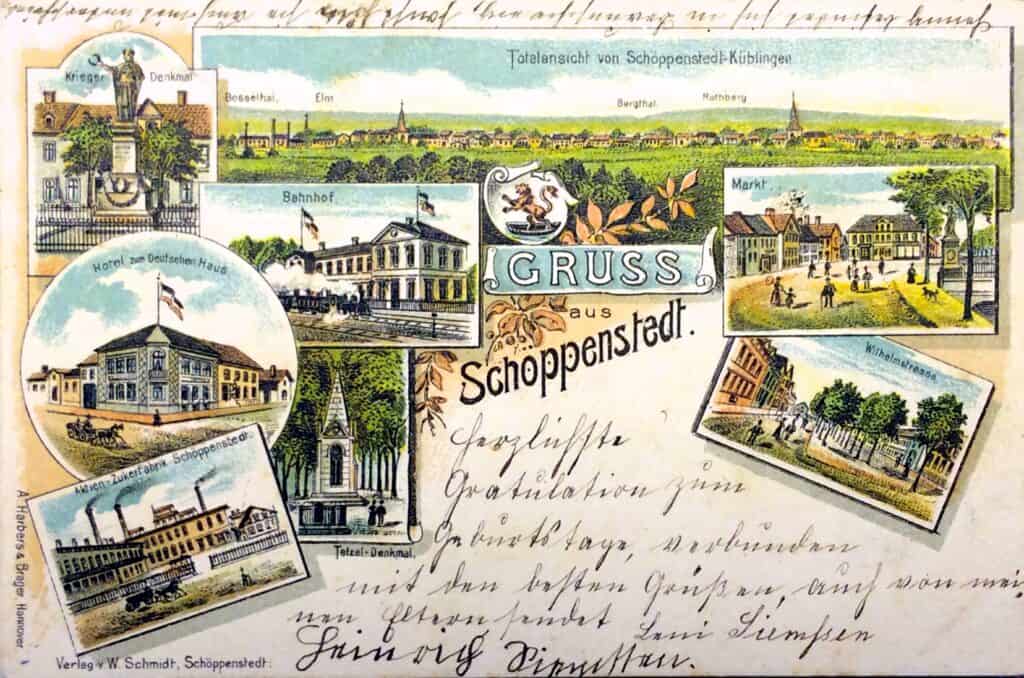 Totalansicht von Schöppenstedt-Küblingen
Krieger Denkmal
Bosselhai. Elm Bergthal. Rothberg
Bahnhof.
Markt.
Hotel zum Deutschen Haus
GRUSS
aus
Schöppenstedt.
Wilhelmstrasse
Aktien-Zukerfabrik Schöppenstedt.
Tetzel-Denkmal.
Herzlichste
Gratulation zum
Geburtstage, verbunden
mit den besten Grüßen, auch von mei-
nen Eltern sendet Leni Siemssen
Heinrich Siemssen.
A. Harbers & Brager Hannover
Verlag v. W. Schmidt, Schöppenstedt.